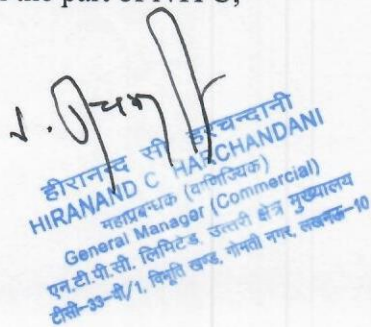 the part of NTPC,
हीरानन्द सी हरचन्दानी
HIRANAND C HARCHANDANI
महाप्रबन्धक (वाणिज्यिक)
General Manager (Commercial)
एन.टी.पी.सी. लिमिटेड, उत्तरी क्षेत्र मुख्यालय
टीसी-33-वी/1, विभूति खण्ड, गोमती नगर, लखनऊ-10